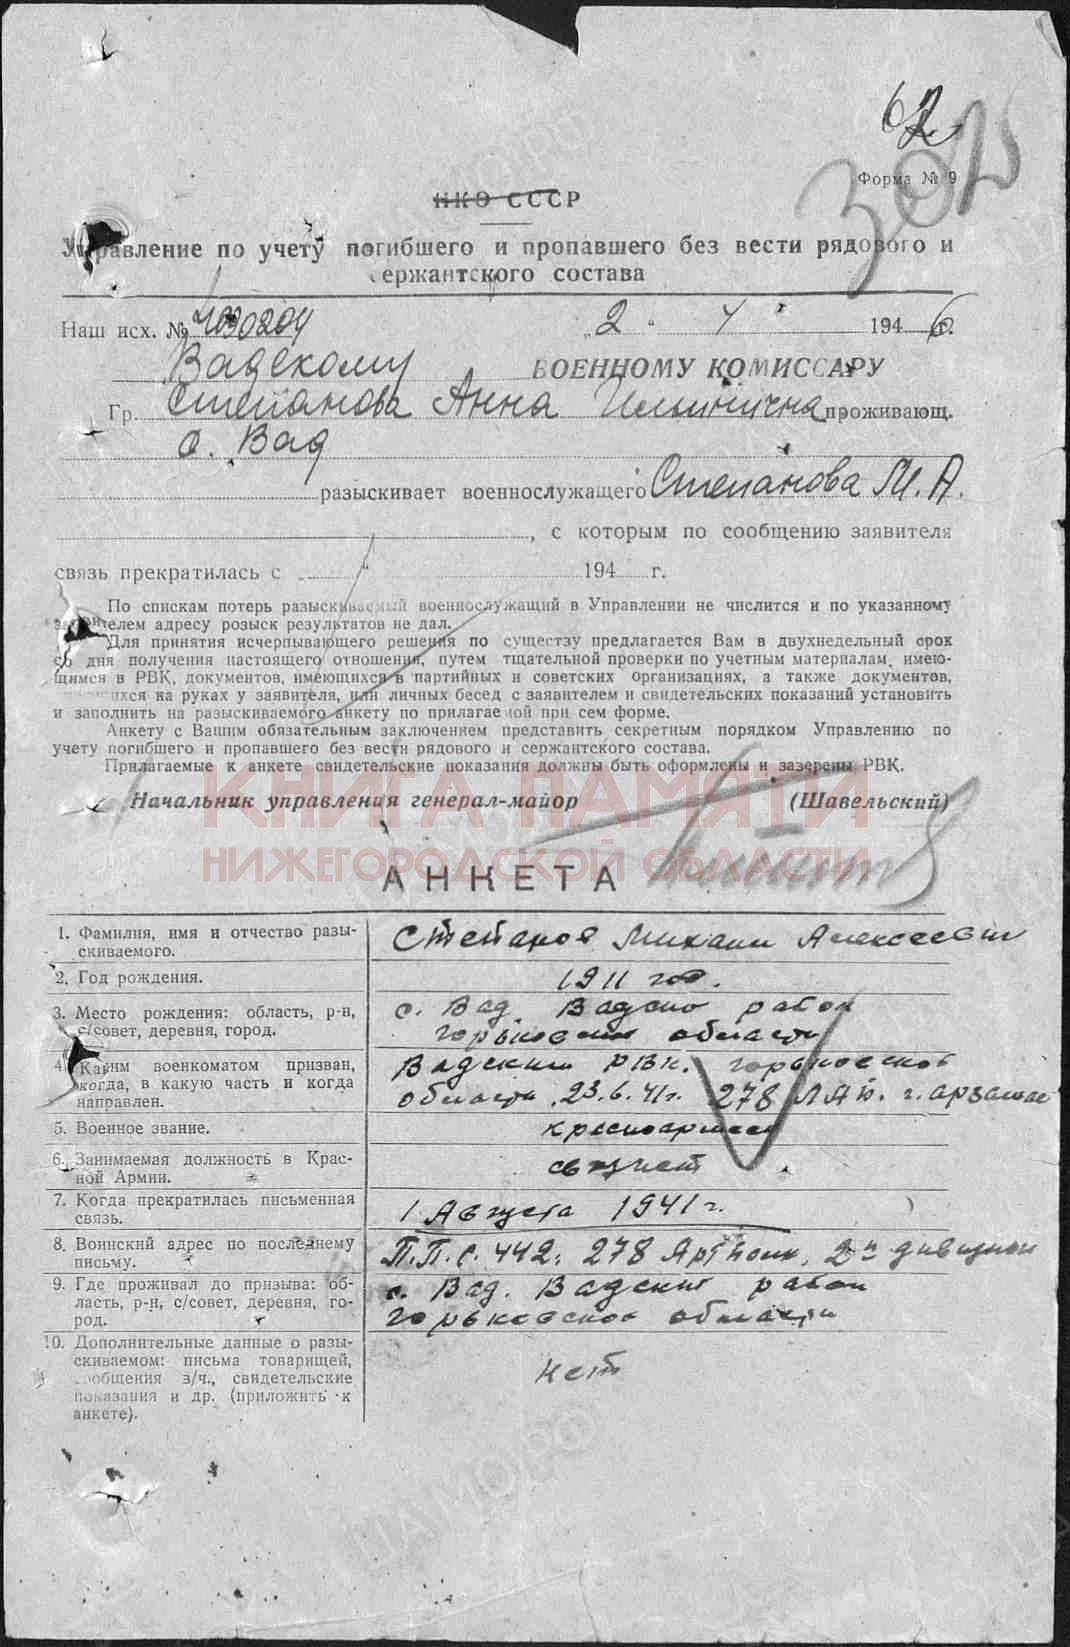 62
3025
Форма № 9
НКО СССР
Управление по учету погибшего и пропавшего без вести рядового и
сержантского состава
Наш исх. № 4030204 „2" 4 1946 г.
Вадскому ВОЕННОМУ КОМИССАРУ
Гр. Степанова Анна Ильинична проживающ.
с. Вад
разыскивает военнослужащего Степанова М. А.
, с которым по сообщению заявителя
связь прекратилась с „ " 194 г.
По спискам потерь разыскиваемый военнослужащий в Управлении не числится и по указанному
заявителем адресу розыск результатов не дал.
Для принятия исчерпывающего решения по существу предлагается Вам в двухнедельный срок
со дня получения настоящего отношения, путем тщательной проверки по учетным материалам, имею-
щимся в РВК, документов, имеющихся в партийных и советских организациях, а также документов,
имеющихся на руках у заявителя, или личных бесед с заявителем и свидетельских показаний установить
и заполнить на разыскиваемого анкету по прилагаемой при сем форме.
Анкету с Вашим обязательным заключением представить секретным порядком Управлению по
учету погибшего и пропавшего без вести рядового и сержантского состава.
Прилагаемые к анкете свидетельские показания должны быть оформлены и заверены РВК.
КНИГА ПАМЯТИ
Начальник управления генерал-майор (Шавельский)
НИЖЕГОРОДСКОЙ ОБЛАСТИ
АНКЕТА
1. Фамилия, имя и отчество разы-
скиваемого.
Степанов Михаил Алексеевич
2. Год рождения.
1911 год.
3. Место рождения: область, р-н,
с/совет, деревня, город.
с. Вад Вадско район
горьковский области
4. Каким военкоматом призван,
когда, в какую часть и когда
направлен.
Вадским РВК. горьковской
области 23.6.41г. 278 ЛАП. г. арзамас
5. Военное звание.
красноармеец
6. Занимаемая должность в Крас-
ной Армии.
связист
7. Когда прекратилась письменная
связь.
1 Августа 1941 г.
8. Воинский адрес по последнему
письму.
П.П.С. 442, 278 Арт полк, 2й дивизион
9. Где проживал до призыва: об-
ласть, р-н, с/совет, деревня, го-
род.
с. Вад. Вадский район
горьковской области
10. Дополнительные данные о разы-
скиваемом: письма товарищей,
сообщения в/ч., свидетельские
показания и др. (приложить к
анкете).
нет